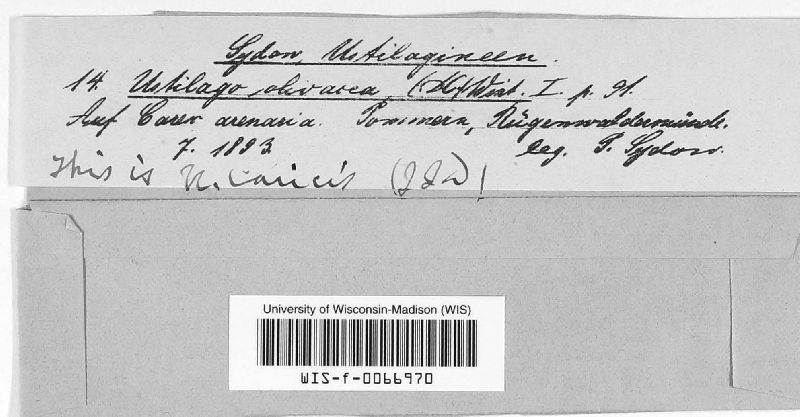 Sydow, Ustilagineen.
14. Ustilago olivacea, (DC) Wint. I. p. 91.
Auf Carex arenaria. Pommern, Rügenwaldermünde.
7. 1893. leg. P. Sydow.
This is U. Caricis
University of Wisconsin-Madison (WIS)
WIS-f-0066970